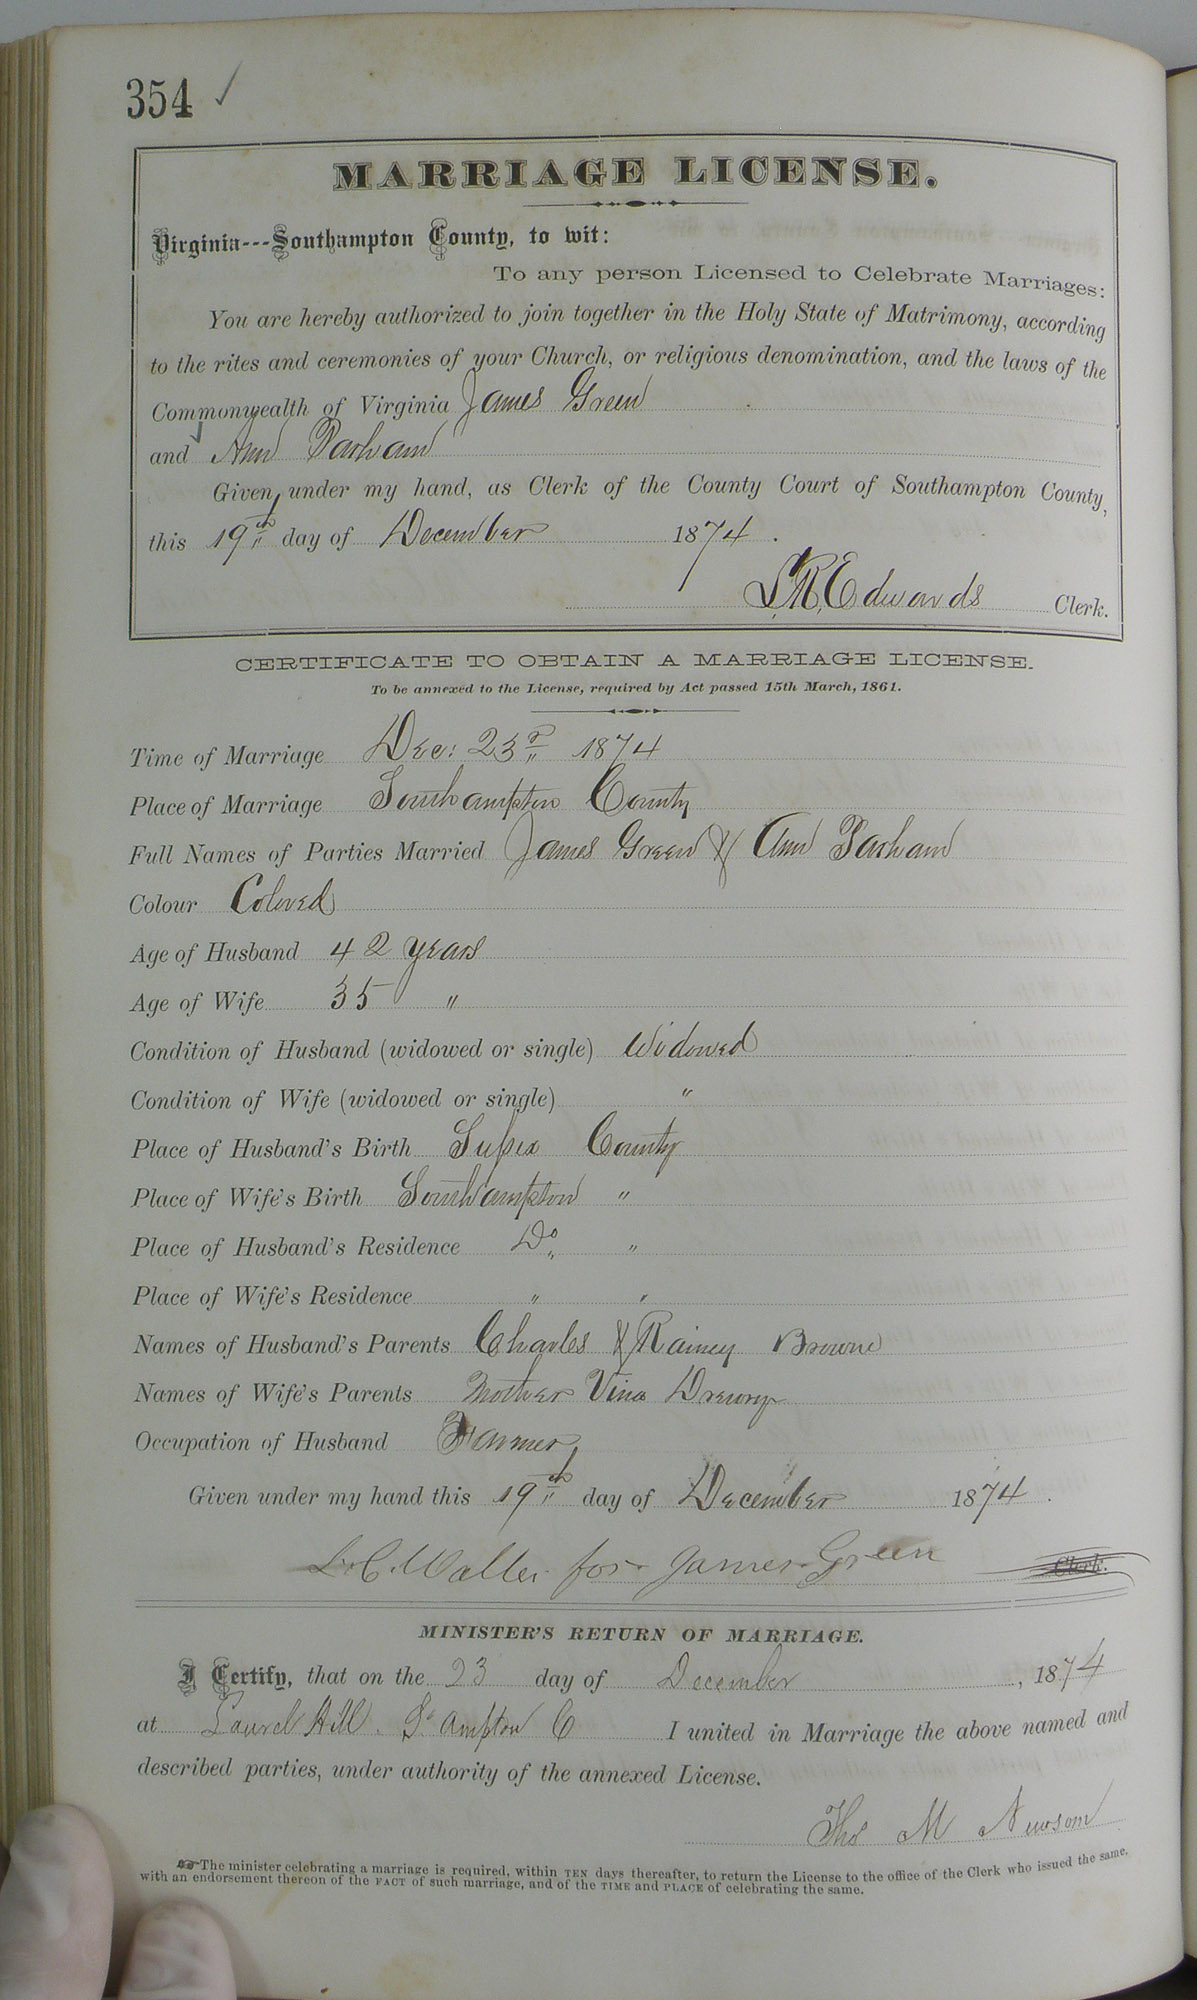 354 ✓
MARRIAGE LICENSE.
Virginia---Southampton County, to wit:
To any person Licensed to Celebrate Marriages:
You are hereby authorized to join together in the Holy State of Matrimony, according
to the rites and ceremonies of your Church, or religious denomination, and the laws of the
Commonwealth of Virginia James Green
and Ann Parham
Given under my hand, as Clerk of the County Court of Southampton County,
this 19th day of December 1874.
L.R. Edwards Clerk.
CERTIFICATE TO OBTAIN A MARRIAGE LICENSE.
To be annexed to the License, required by Act passed 15th March, 1861.
Time of Marriage Dec: 23rd 1874
Place of Marriage Southampton County
Full Names of Parties Married James Green & Ann Parham
Colour Colored
Age of Husband 42 years
Age of Wife 35 "
Condition of Husband (widowed or single) Widowed
Condition of Wife (widowed or single) "
Place of Husband's Birth Sussex County
Place of Wife's Birth Southampton "
Place of Husband's Residence Do "
Place of Wife's Residence " "
Names of Husband's Parents Charles & Rainey Browne
Names of Wife's Parents Mother Vina Drewry
Occupation of Husband Farmer
Given under my hand this 19th day of December 1874.
L. C. Waller for James Green Clerk.
MINISTER'S RETURN OF MARRIAGE.
I Certify, that on the 23 day of December, 1874
at Laurel Hill. So ampton C I united in Marriage the above named and
described parties, under authority of the annexed License.
Thos M Newsom
☞ The minister celebrating a marriage is required, within TEN days thereafter, to return the License to the office of the Clerk who issued the same,
with an endorsement thereon of the FACT of such marriage, and of the TIME and PLACE of celebrating the same.